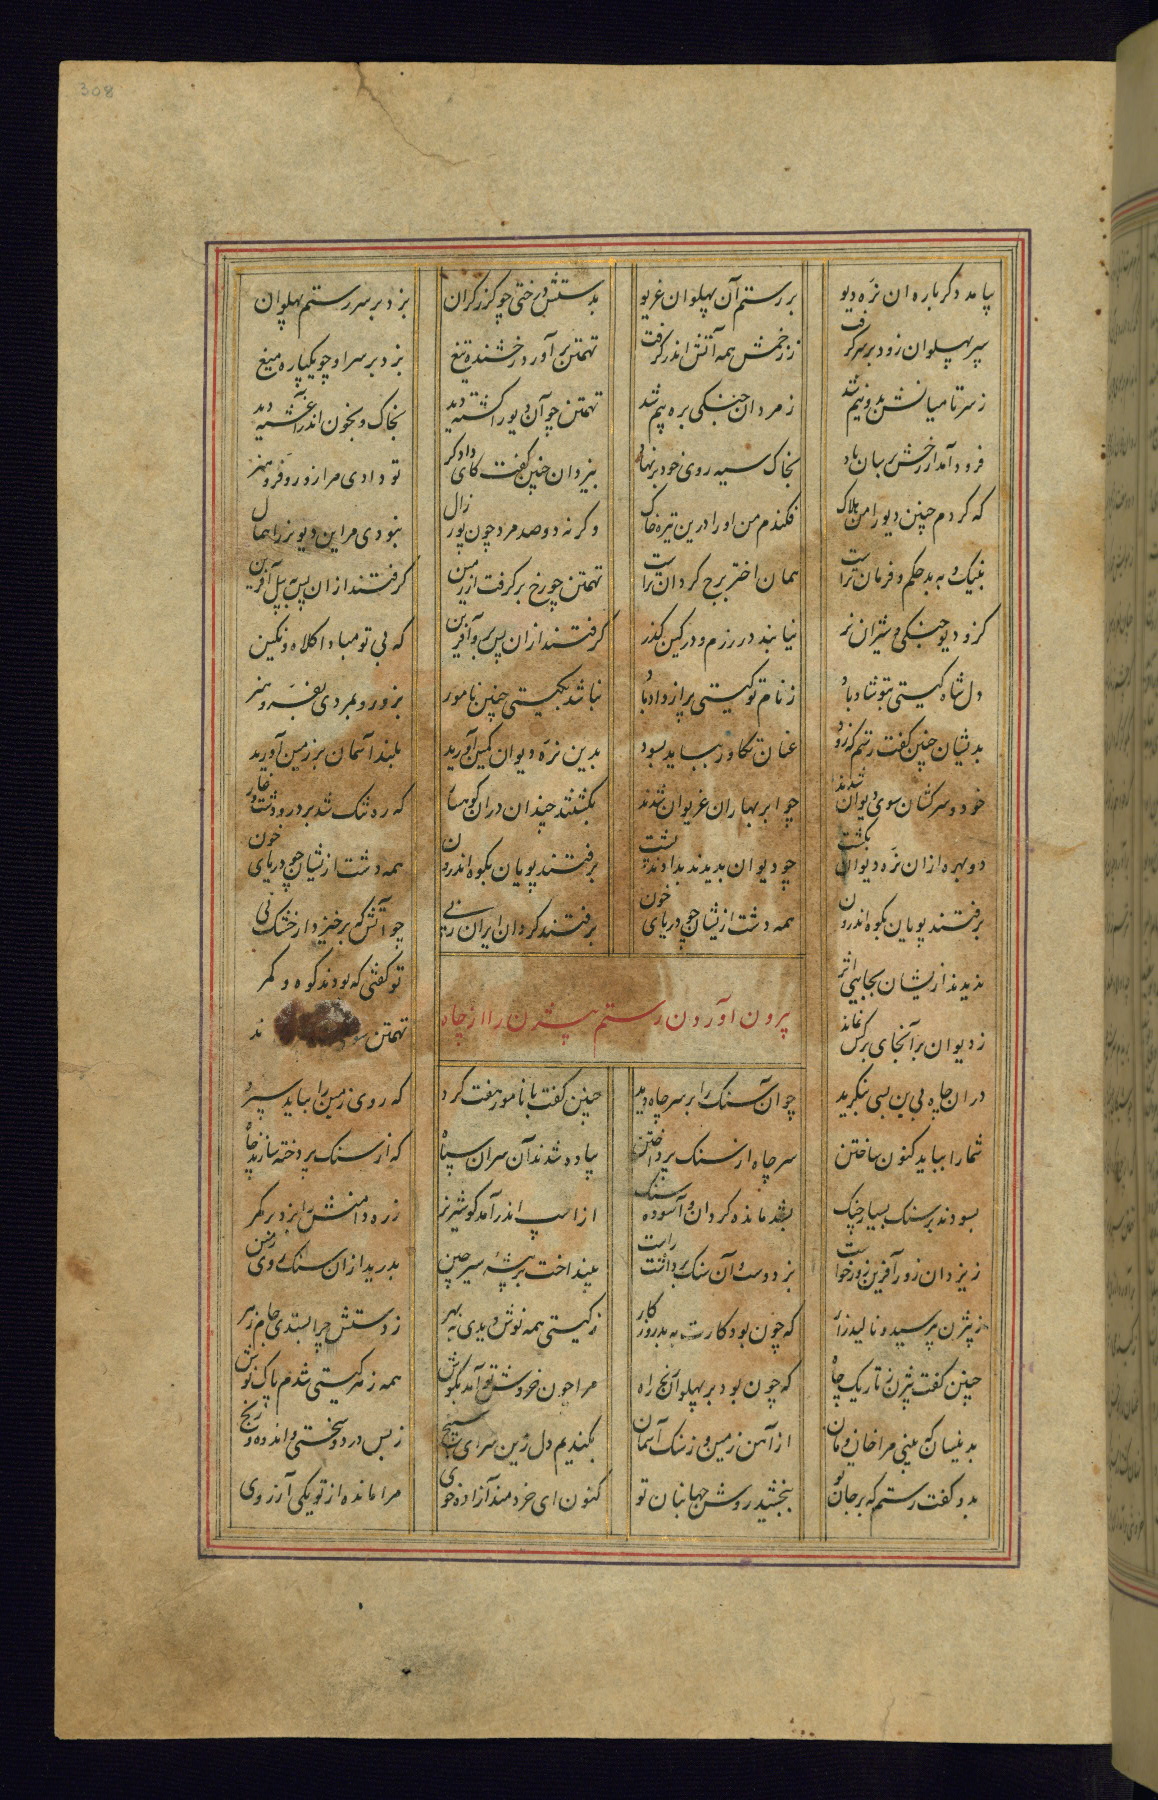 308
بیامد دگر باره ان نره دیو بر رستم آن پهلوان غریو بدستش درختی چو گرز گران بزد بر سر رستم پهلوان
سپر پهلوان زود بر سر گرفت ززخمش همه آتش اندر گرفت تهمتن برآورد رخشنده تیغ بزد بر سر او چو یکپاره میغ
ز سر تا میانش بدو نیم شد ز مردان جنگی پر بیم شد تهمتن چو آن دیو را کشته دید بخاک و بخون اندر آغشته دید
فرود آمد از رخش بخاک سیه روی خود بر نهاد بیزدان چنین گفت کای دادگر تو دادی مرا زور و فر و هنر
که کردم چنین دیو را من هلاک فکندم من او را درین تیره خاک وگرنه دو صد مرد چون پور زال نبودی مر این دیو نر را همال
بنیک و به بد حکم و فرمان تراست همان اختر برج گردان تراست تهمتن چو رخ بر گرفت از زمین گرفتند ازان پس به پیل آفرین
کزو دیو جنگی و شیران نر نیابند در رزم و در کین گذر گرفتند ازان پس برو آفرین که بی تو مبادا کلاه و نگین
دل شاه گیتی بتو شاد باد ز نام تو گیتی پر از داد باد نباشد بگیتی چنین نامور بزور و بمردی بفر و هنر
بدیشان چنین گفت رستم که زود عنان تکاور بباید بسود بدین نره دیوان کمین آورید بلند آسمان بر زمین آورید
خود و سرکشان سوی دیوان شدند چو ابر بهاران غریوان شدند بکشتند چندان دران کوهسار که ره تنک شد بر در و دشت و غار
دو بهره ازان نره دیوان بکشت چو دیوان بدیدند بدادند پشت برفتند پویان بکوه اندرون همه دشت ازیشان چو دریای خون
برفتند پویان بکوه اندرون همه دشت ازیشان چو دریای خون برفتند گردان ایران ز پی چو آتش که برخیزد از خشک نی
ندیدند ازیشان بجایی اثر تو گفتی که بودند کوه و کمر
بیرون آوردن رستم بیژن را از چاه
ز دیوان بر آنجای بر کس نماند تهمتن سوی ند
دران چاه بی بن بسی بنگرید چو آن سنگ را بر سر چاه دید چنین گفت با نامور هفت گرد که روی زمین را بباید سپرد
شما را بباید کنون ساختن سر چاه از سنگ پرداختن پیاده شدند آن سران سپاه که از سنگ پردخته سازند چاه
بسودند بر سنگ بسیار چنگ بشد مانده گردان و آسوده سنگ از اسپ اندر آمد گو شیر نر زره دامنش را بزد بر کمر
ز یزدان زور آفرین زور خواست بزد دست و آن سنگ برداشت راست بینداخت بر بیشه سیر چین بدرید ازان سنگ روی زمین
ز بیژن بپرسید و نالید زار که چون بود کارت به بد روزگار ز گیتی همه نوش دیدی به بهر ز دستش چرا بستدی جام زهر
چنین گفت بیژن ز تاریک چاه که چون بود بر پهلوان رنج راه مرا چون خروش تو آمد بگوش همه زهر گیتی شدم پاک نوش
بدینسان که بینی مرا خان و مان از آهن زمین و ز سنگ آسمان بکندیم دل زین سرای سپنج ز بس درد و سختی و اندوه و رنج
بدو گفت رستم که بر جان تو ببخشید روشن جهانبان تو کنون ای خردمند آزاده خوی مرا مانده از تو یکی آرزوی